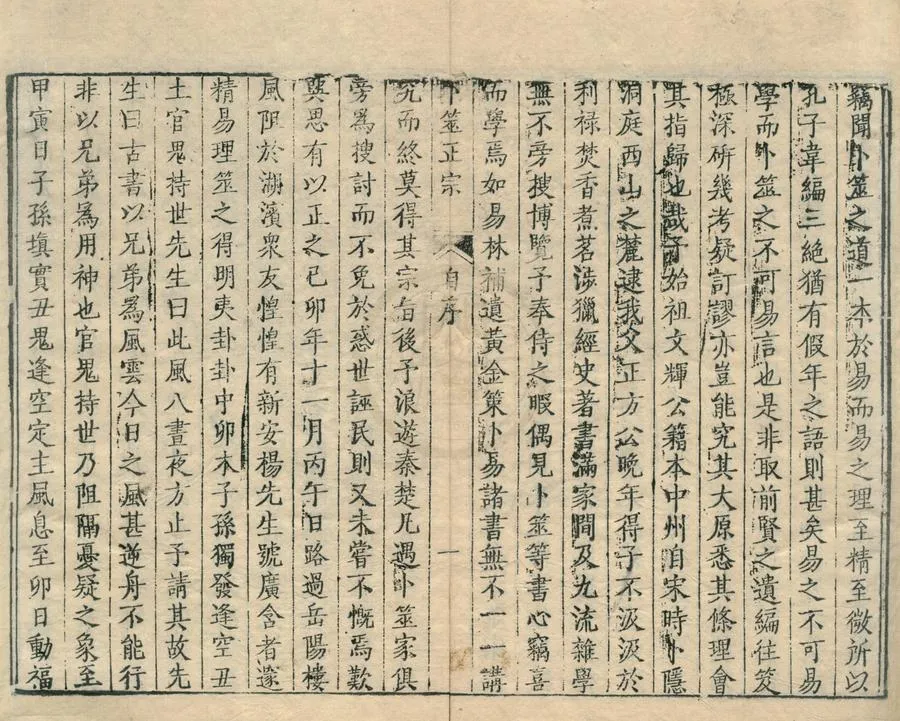 竊聞卜筮之道一本於易而易之理至精至微所以
孔子韋編三絕猶有假年之語則甚矣易之不可易
學而卜筮之不可易言也是非取前賢之遺編往笈
極深硏幾考疑訂謬亦豈能究其大原悉其條理會
其指歸也哉予始祖文輝公籍本中州自宋時卜隱
洞庭西山之麓逮我父正方公晚年得子不汲汲於
利祿焚香煮茗涉獵經史著書滿家間及九流雜學
無不旁搜博覽予奉侍之暇偶見卜筮等書心竊喜
而學焉如易林補遺黃金策卜易諸書無不一一講
卜筮正宗 自序 一
究而終莫得其宗旨後予浪遊秦楚凡遇卜筮家俱
旁爲搜討而不免於惑世誣民則又未嘗不慨焉歎
興思有以正之已卯年十一月丙午日路過岳陽樓
風阻於湖濱衆友惶惶有新安楊先生號廣含者遂
精易理筮之得明夷卦卦中卯木子孫獨發逢空丑
土官鬼持世先生曰此風八晝夜方止予請其故先
生曰古書以兄弟爲風雲今日之風甚逆舟不能行
非以兄弟爲用神也官鬼持世乃阻隔憂疑之象至
甲寅日子孫塡實丑鬼逢空定主風息至卯日動福